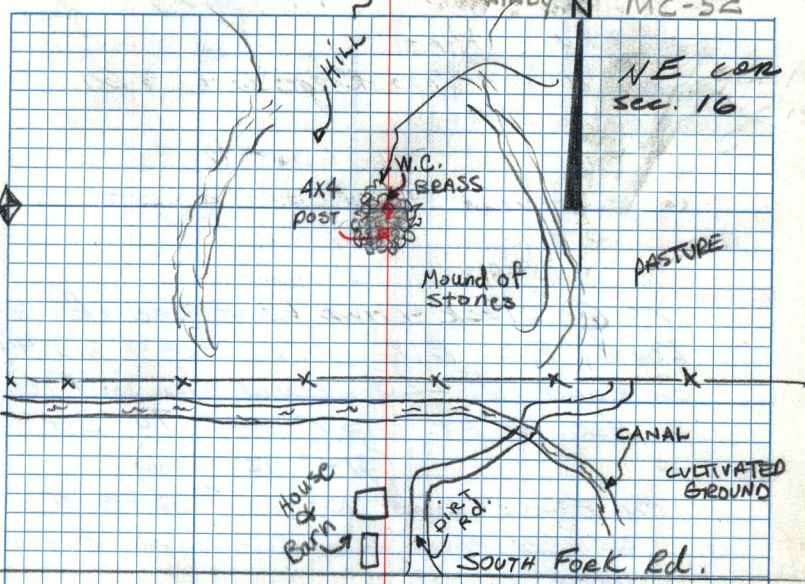 N MC-52
NE COR
SEC. 16
HILL
W.C.
BRASS
4X4
POST
Mound of
Stones
PASTURE
CANAL
CULTIVATED
GROUND
House
&
Barn
DIRT
Rd.
SOUTH FORK Rd.